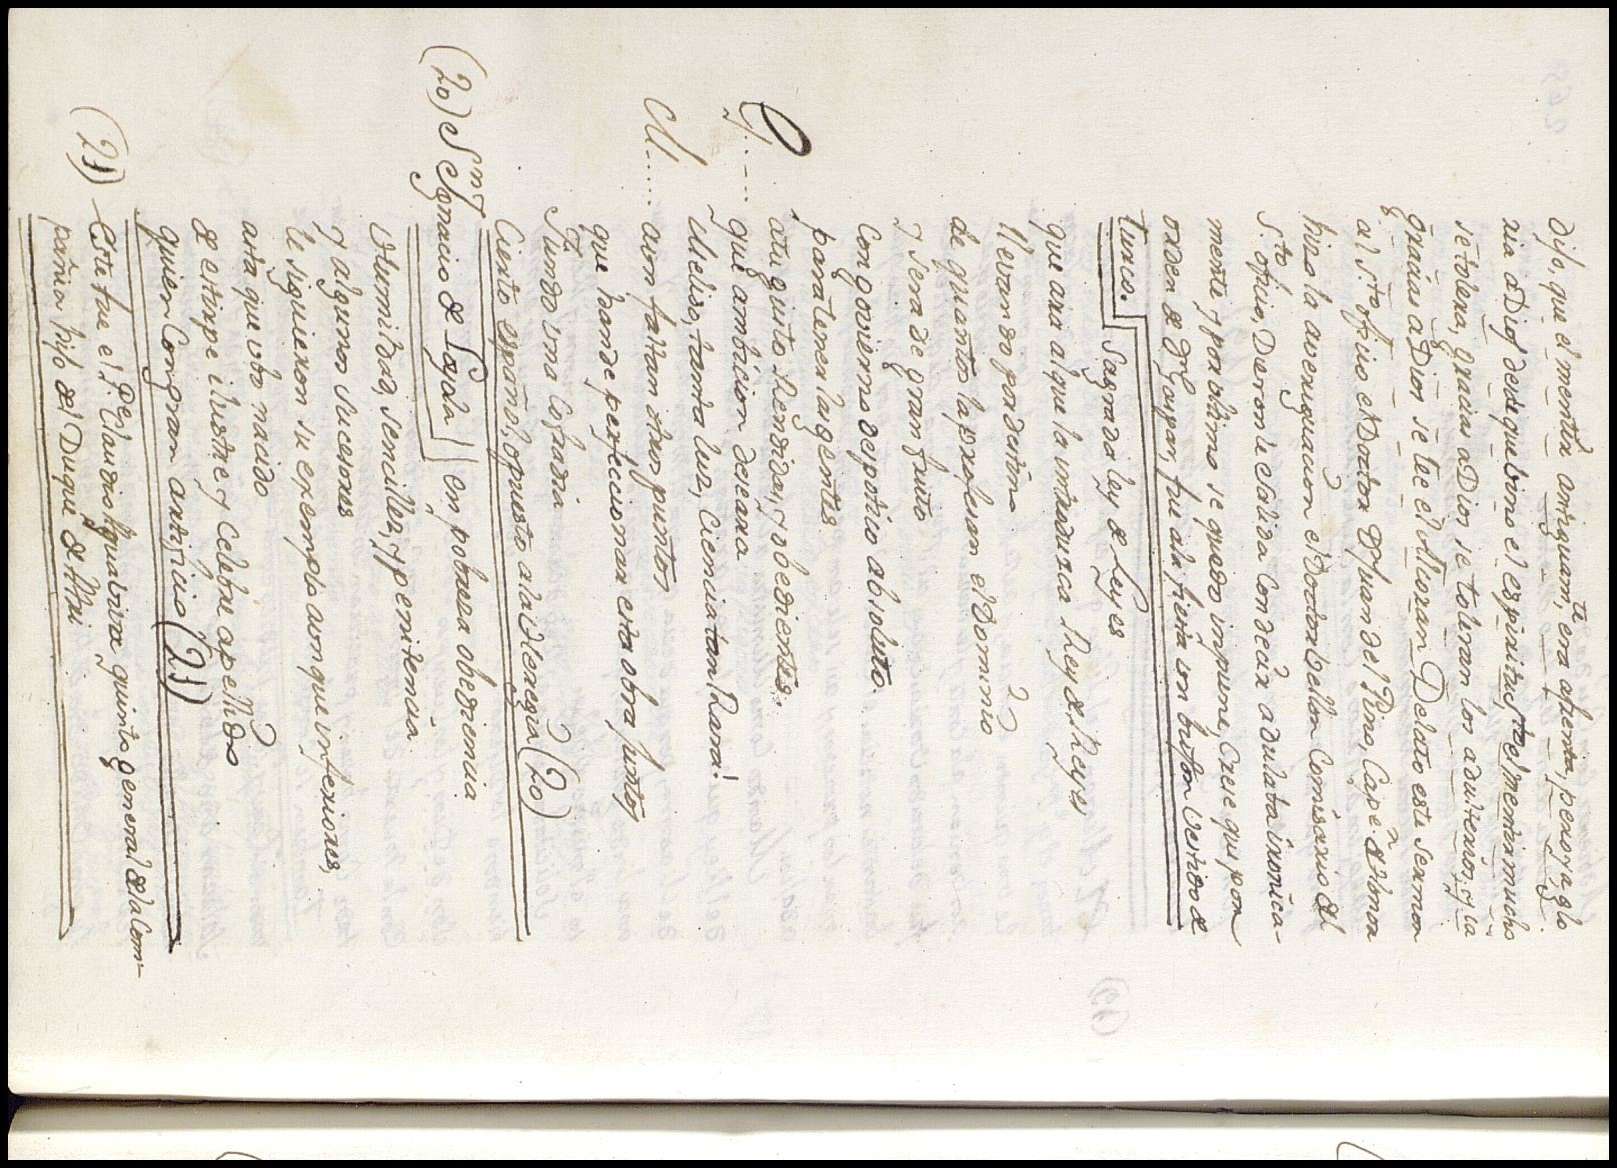 dijo, que el mentir antiguam.te era afrenta, pero ya, glo
ria a Dios desde que bino el espiritu, el mentir mucho
se tolera, gracias a Dios se toleran los adulterios, y la
gracias a Dios se lee el Alcoran. Delato este sermon
al S.to oficio el Doctor D.n Juan del Pino, Cap.n de Honor
hizo la averiguacion el Doctor Vellon Comisario del
S.to oficio, Deron le calida con deár adulatá irónica-
mente y por ultimo se quedo impune, Cree que por
orden de D.n Gaspar fue ala fiesta un bufon vestido de
turco. Sagrada ley de Leyes
que ara al que la introduzca Rey de Reyes
llevando por destino
de quantos la profesan el Dominio
y sera de gran fruto
con govierno despotico absoluto.
para tener las gentes
a tu gusto rendidas, y obedientes.
G...... que ambicion deseara
Meliso, tanta luz, Ciencia tan Rara!
M...... aun faltan otros puntos
que han de perfeccionar esta obra juntos
Fundó una Cofadria
Cierto español, opuesto a la Alegria (20)
(20) S.n Ygnacio de Loyola en pobreza obediencia
Humildad, sencillez, y penitencia
y algunos sucesores
le siguieron su exemplo aunque inferiores,
asta que ubo nacido
de estirpe ilustre y celebre apellido
quien con gran artificio (21)
(21) Este fue el P.e Claudio Aquabiva quinto general de la Com-
pañia hijo del Duque de Atri